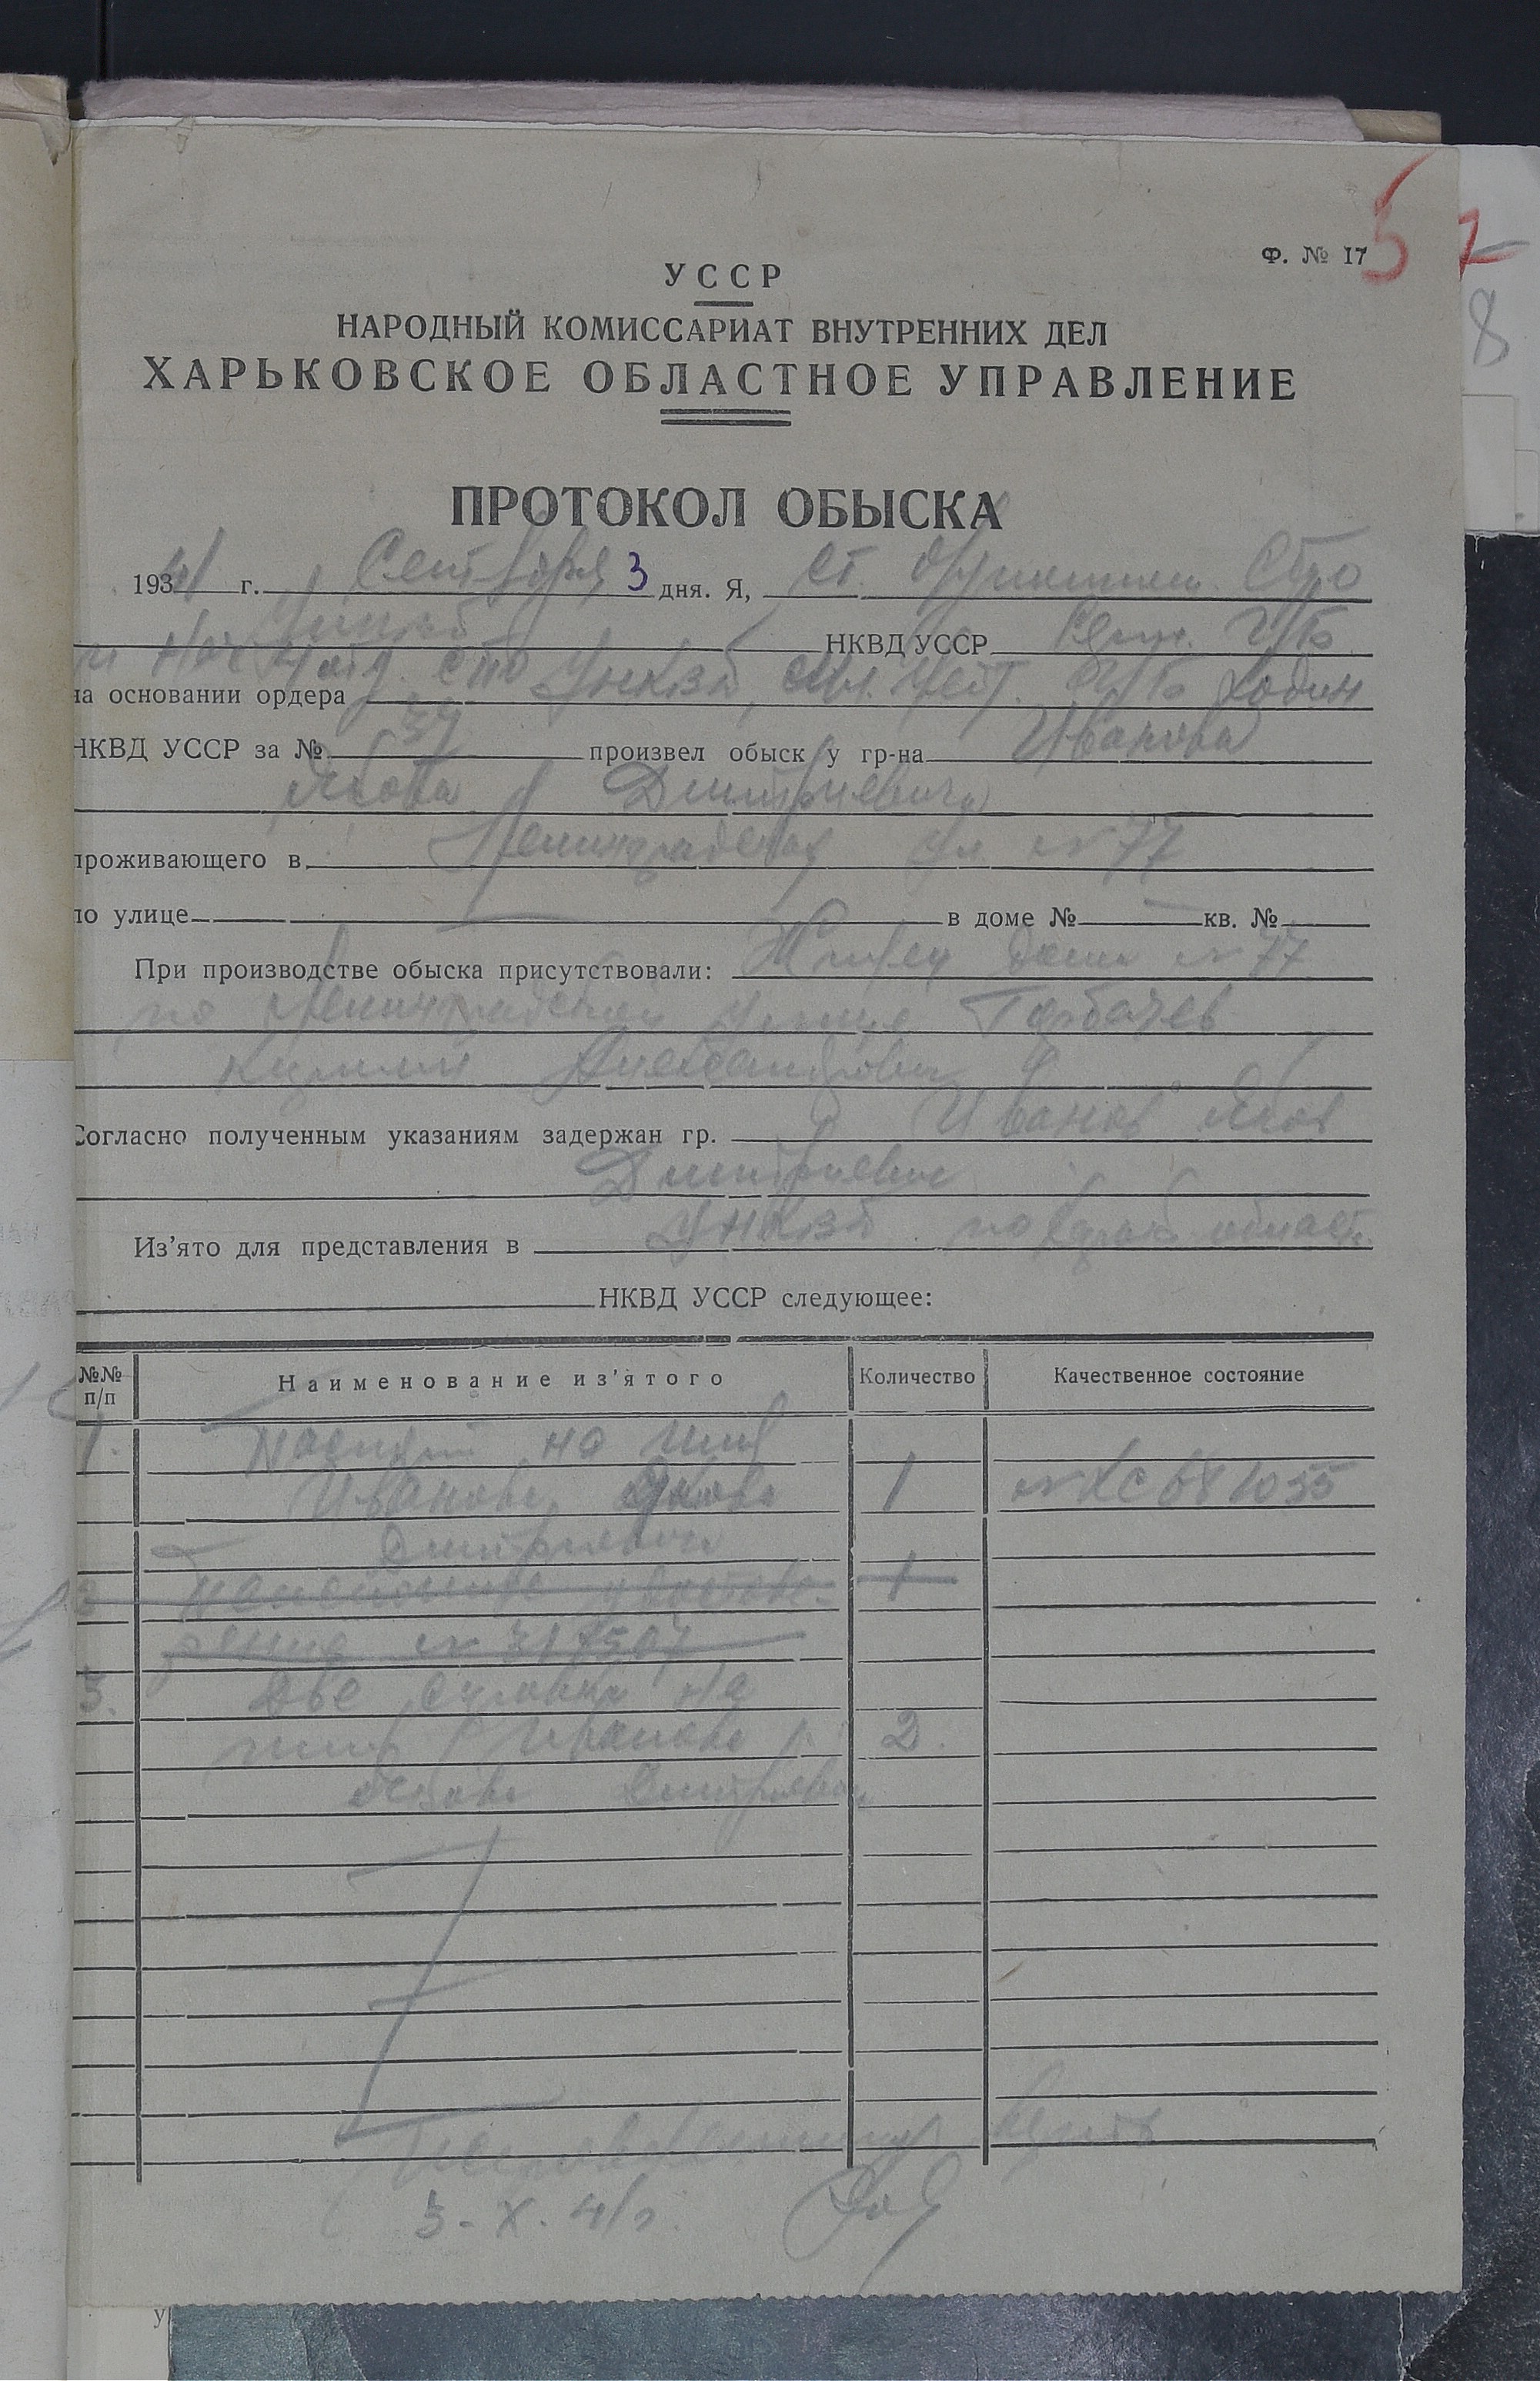 Ф. № 17
57
8
УССР
НАРОДНЫЙ КОМИССАРИАТ ВНУТРЕННИХ ДЕЛ
ХАРЬКОВСКОЕ ОБЛАСТНОЕ УПРАВЛЕНИЕ
ПРОТОКОЛ ОБЫСКА
1941 г. Сентября 3 дня. Я, ст оружием СПО
НКВД УССР Серж. ГБ
и Нач 4 отд. СПО УНКВД, Мл. Лейт. ГБ Ходин
на основании ордера
НКВД УССР за № 34 произвел обыск у гр-на Иванова
Якова Дмитриевича
проживающего в Ленинградская ул № 77
по улице — в доме № — кв. №
При производстве обыска присутствовали: Жилец дома № 77
по Ленинградской улице Горбачев
Кирилл Александрович
Согласно полученным указаниям задержан гр. Иванов Яков
Дмитриевич
Из'ято для представления в УНКВД по Харьк области
НКВД УССР следующее:
№№ п/п Наименование из'ятого Количество Качественное состояние
1. Паспорт на имя
Иванова Якова 1 № КС 681055
Дмитриевича
2 Пенсионное удостове- 1
рение № 317507
3. Две справки на
имя Иванова 2.
Якова Дмитриевича
3-X-41 г.